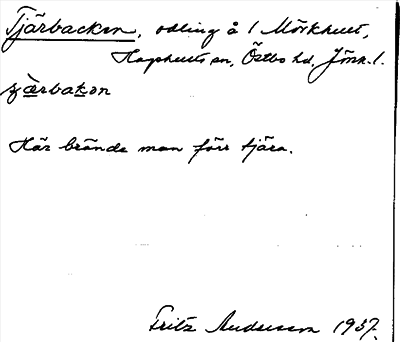 Tjärbacken, odling å 1 Mörkhult,
Hagshults sn, Östbo hd, Jönk. l.
çæ̀rbakən
Här brände man förr tjära.
Fritz Andersson 1937.